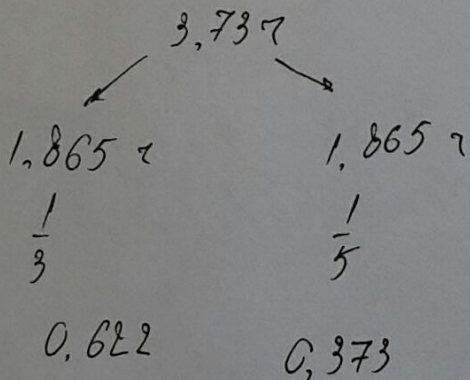 3,73 г
1,865 г 1,865 г
1/3 1/5
0,622 0,373